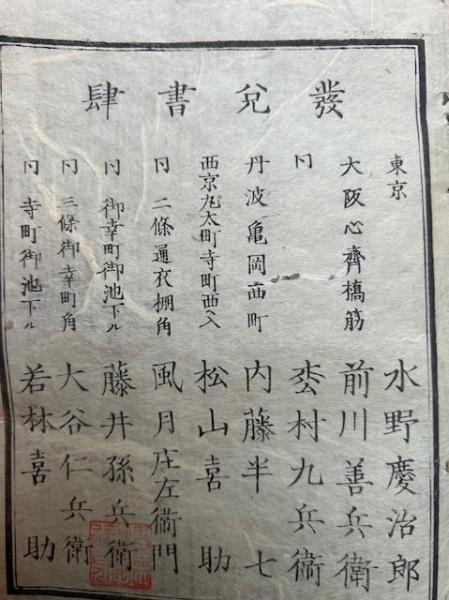 發兌書肆
東京 水野慶治郎
大阪心齊橋筋 前川善兵衛
同 枩村九兵衛
丹波亀岡西町 内藤半七
西京丸太町寺町西入 松山喜助
同 二條通衣棚角 風月庄左衛門
同 御幸町御池下ル 藤井孫兵衛
同 三條御幸町角 大谷仁兵衛
同 寺町御池下ル 若林喜助